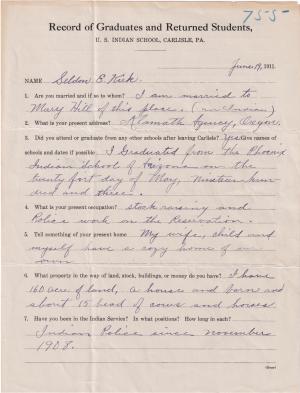 755-
Record of Graduates and Returned Students,
U. S. INDIAN SCHOOL, CARLISLE, PA.
June 19, 1911.
NAME Seldon E. Kirk.
1. Are you married and if so to whom? I am married to
Mary Hill of this place. (an Indian)
2. What is your present address? Klamath Agency, Oregon.
3. Did you attend or graduate from any other schools after leaving Carlisle? Yes Give names of
schools and dates if possible. I graduated from the Phoenix
Indian School of Arizona on the
twenty first day of May, nineteen hun
dred and three.
4. What is your present occupation? stock raising and
Police work on the Reservation.
5. Tell something of your present home My wife, child and
myself have a cozy home of our
own
6. What property in the way of land, stock, buildings, or money do you have? I have
160 acre of land, a house and barn and
about 15 head of cows and horses
7. Have you been in the Indian Service? In what positions? How long in each?
Indian Police since November
1908.
(Over)